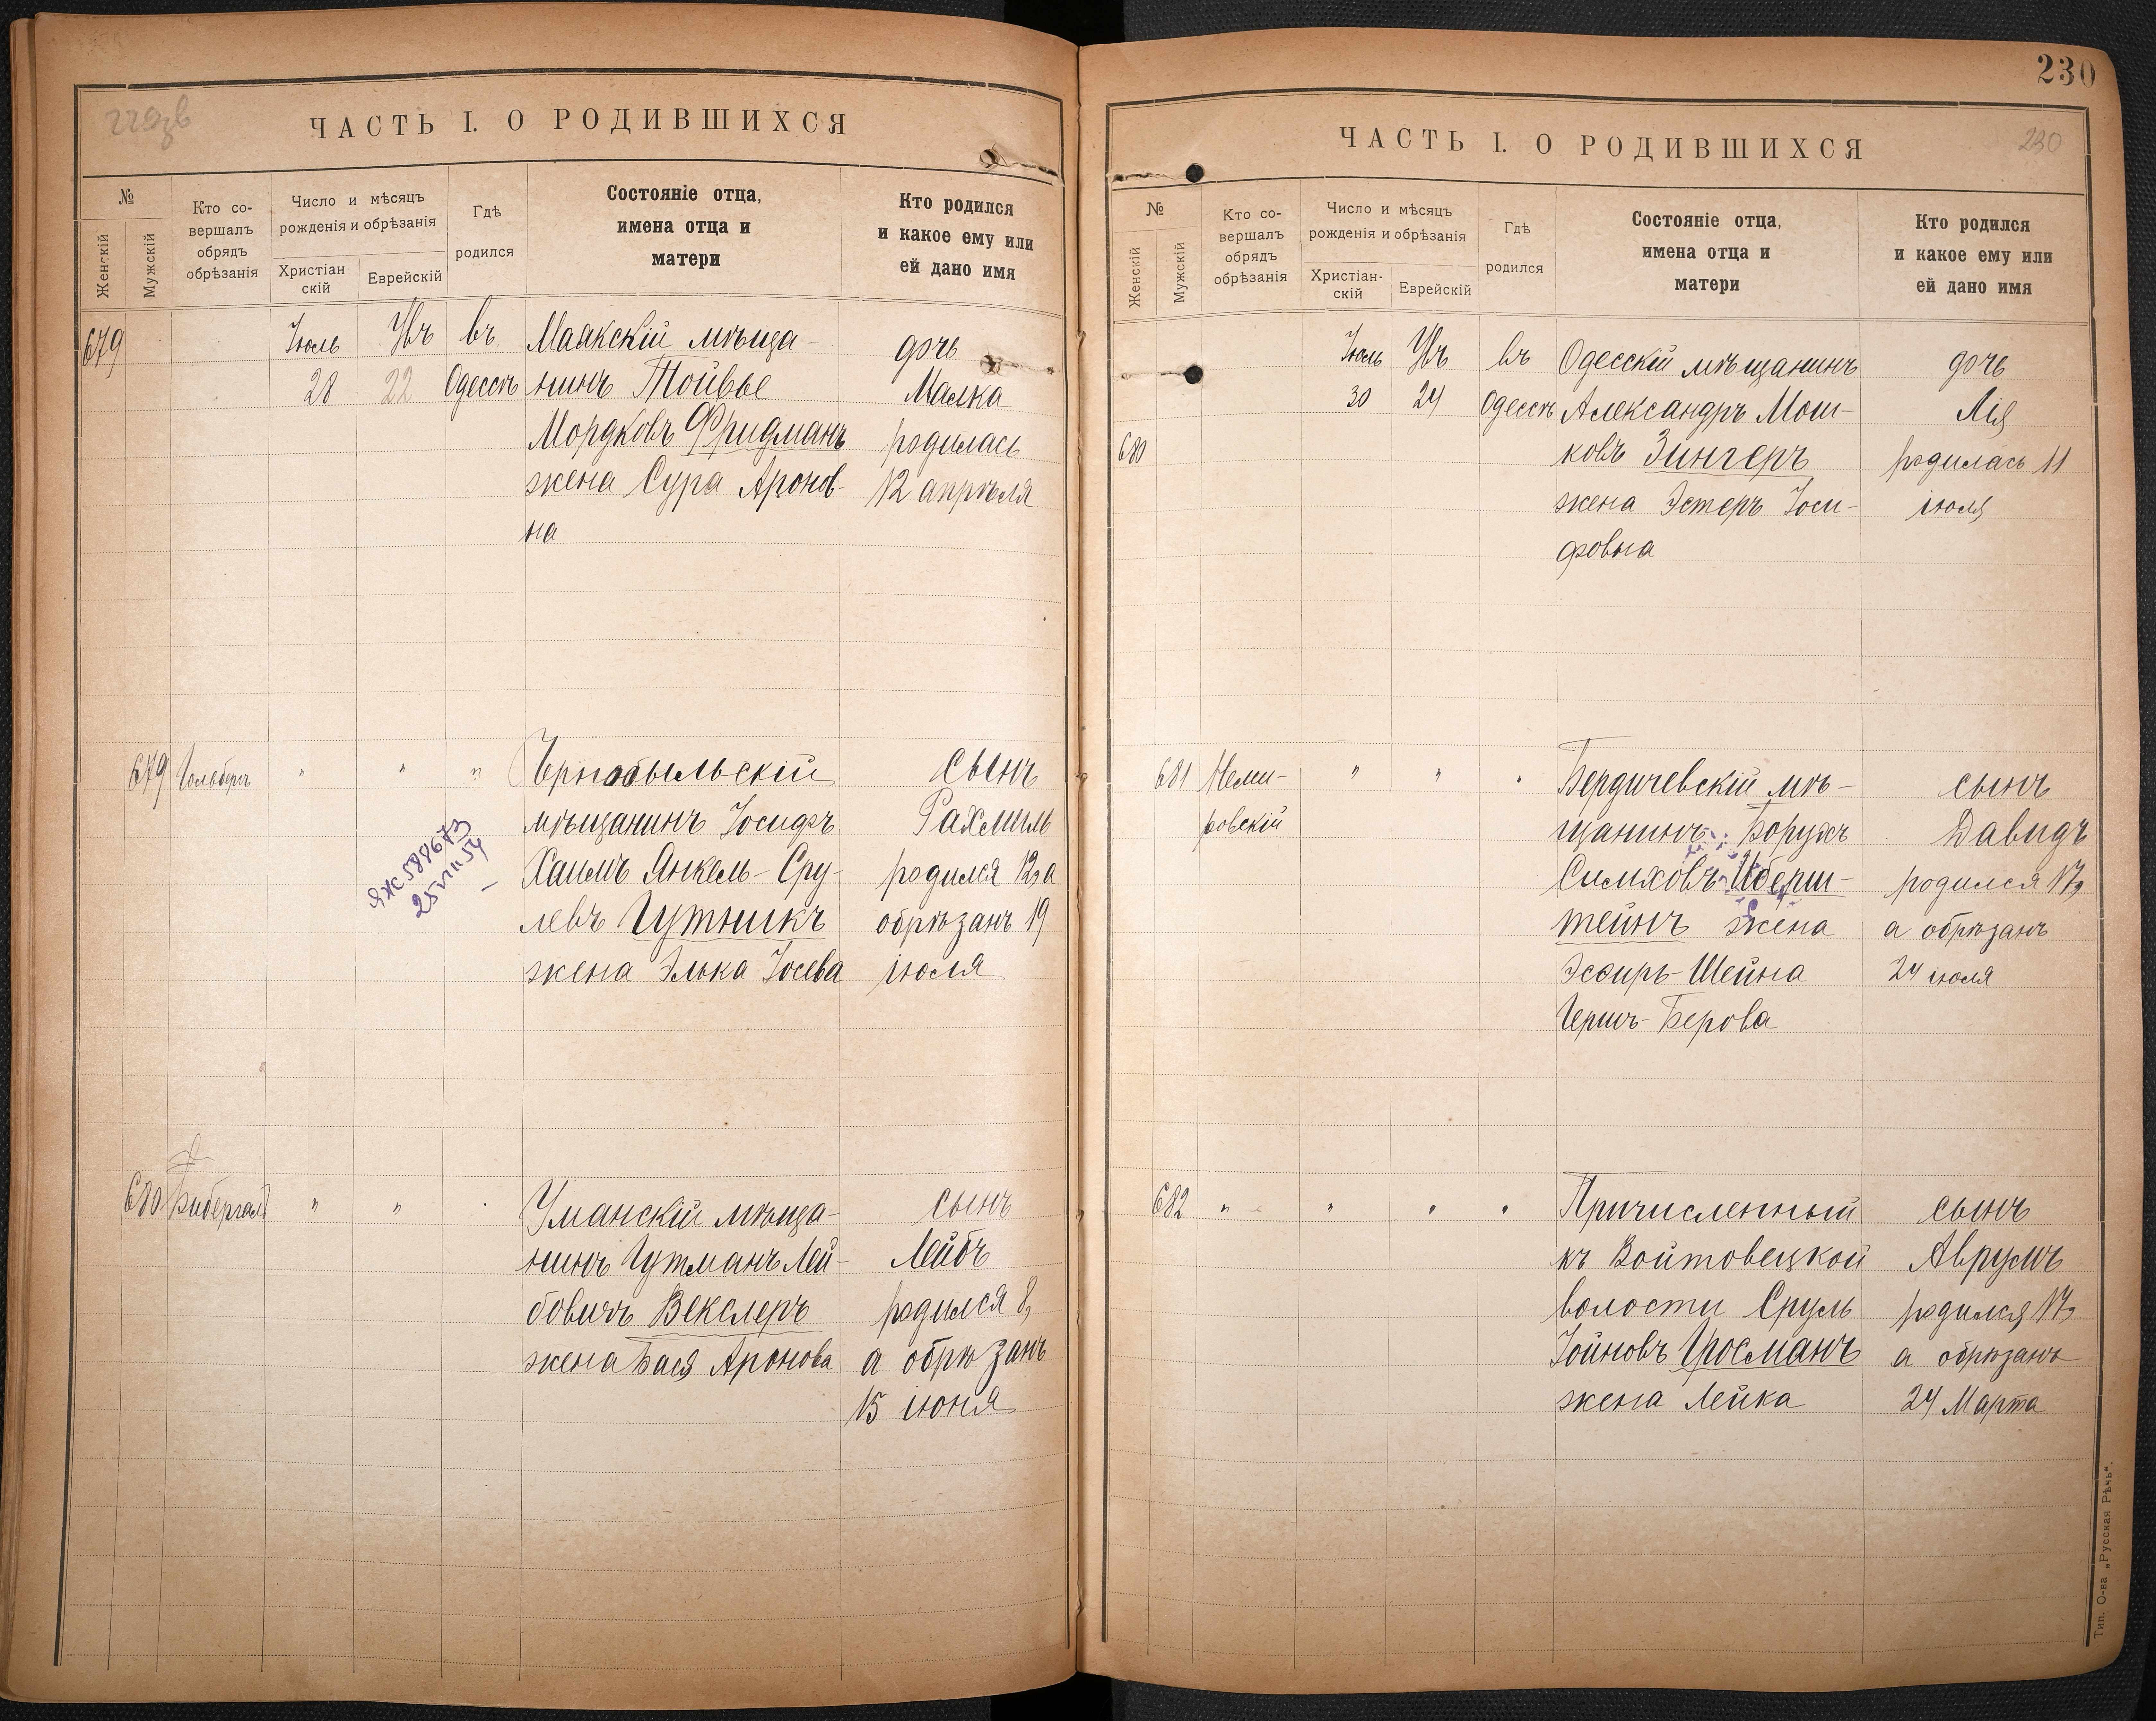 229об
ЧАСТЬ I. О РОДИВШИХСЯ
№
Женскій
Мужскій
Кто со-
вершалъ
обрядъ
обрѣзанія
Число и мѣсяцъ
рожденія и обрѣзанія
Христіан
скій
Еврейскій
Гдѣ
родился
Состояніе отца,
имена отца и
матери
Кто родился
и какое ему или
ей дано имя
679
Іюль
28
Увъ
22
въ
Одессѣ
Маякскій мѣща-
нинъ Тойвье
Мордковъ Фридманъ
жена Сура Аронов-
на
дочь
Малка
родилась
12 апрѣля
679
Гольберъ
"
"
"
Чернобыльскій
мѣщанинъ Іосифъ
Хаимъ Янкель-Сру-
левъ Гутникъ
жена Элька Іосева
сынъ
Рахмиль
родился 12, а
обрѣзанъ 19
іюля
ЯЖ 588673
25 VIII 54
680
Бибергалъ
"
"
"
Уманскій мѣща-
нинъ Гутманъ Лей-
бовичъ Векслеръ
жена Бася Аронова
сынъ
Лейбъ
родился 8,
а обрѣзанъ
15 іюня
230
230
ЧАСТЬ I. О РОДИВШИХСЯ
№
Женскій
Мужскій
Кто со-
вершалъ
обрядъ
обрѣзанія
Число и мѣсяцъ
рожденія и обрѣзанія
Христіан-
скій
Еврейскій
Гдѣ
родился
Состояніе отца,
имена отца и
матери
Кто родился
и какое ему или
ей дано имя
680
Іюль
30
Увъ
24
въ
Одессѣ
Одесскій мѣщанинъ
Александръ Мош-
ковъ Зингеръ
жена Эстеръ Іоси-
фовна
дочь
Лія
родилась 11
іюля
681
Неми-
ровскій
"
"
"
Бердичевскій мѣ-
щанинъ Борухъ
Симховъ Иберш-
тейнъ жена
Эсѳирь-Шейна
Гершъ-Берова
сынъ
Давидъ
родился 17,
а обрѣзанъ
24 іюля
682
"
"
"
"
Причисленный
къ Войтовецкой
волости Сруль
Іойновъ Гросманъ
жена Лейка
сынъ
Аврумъ
родился 17,
а обрѣзанъ
24 Марта
Тип. О-ва „Русская Рѣчь".